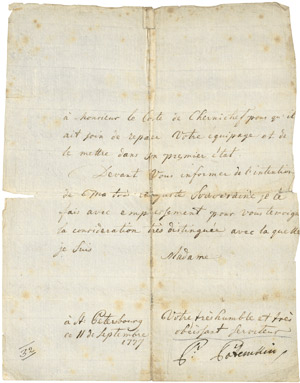 à monsieur le Cte de Chernichef pour qu'il
ait soin de reparer Votre equipage et de
le mettre dans son premier etat
Devant Vous informer de l'intention
de ma très auguste Souveraine je le
fais avec empressement pour vous temoigner
la consideration très distinguée avec laquelle
je suis
Madame
à St Petersbourg
ce 11 de Septembre
1777
Votre très humble et très
obeissant Serviteur
P. Potemkin